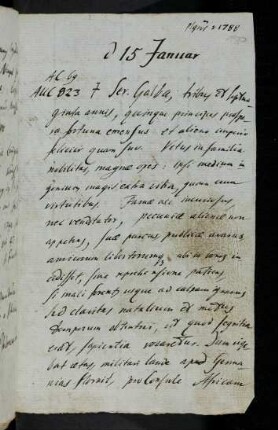 d 15 Januar
A C 69
AUC 823 † Ser. Galba, tribus et septua
ginta annis, quinque principes prospe
ra fortuna emensus: et alieno imperio
felicior quam suo. Vetus in familia
nobilitas, magnae opes: ipsi medium in
genium magis extra vitia, quam cum
virtutibus. Famae nec incuriosus
nec venditator, pecuniae alienae non
appetens, suae parcus publicae avarus
amicorum libertorumq, ubi in bonos in
cidisset, sine reprehensione patiens
si mali forent, usque ad culpam ignarus
Sed claritas natalium et metus
temporum obtentui, ut quod segnitia
erat, sapientia vocaretur. Dum vige
bat aetas, militari laude apud Germa
nias floruit, proconsule Africam